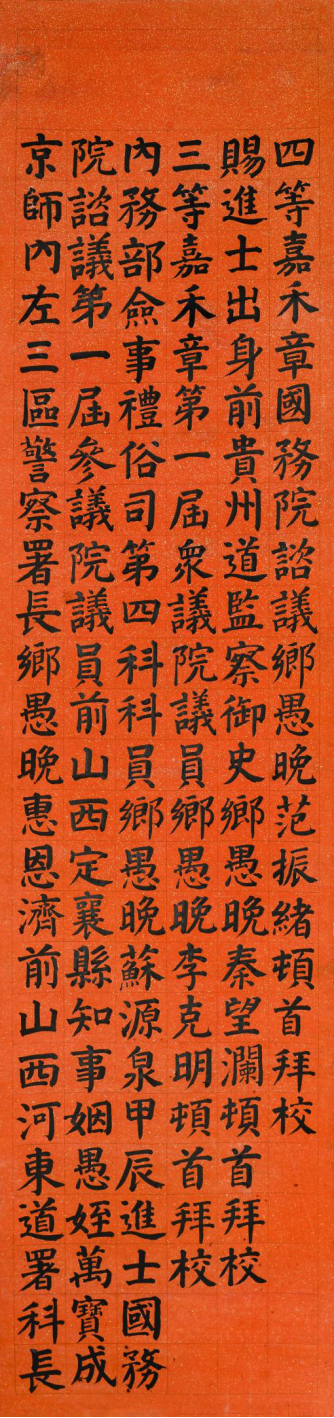 四等嘉禾章國務院諮議鄉愚晚范振緒頓首拜校
賜進士出身前貴州道監察御史鄉愚晚秦望瀾頓首拜校
三等嘉禾章第一屆衆議院議員鄉愚晚李克明頓首拜校
內務部僉事禮俗司第四科科員鄉愚晚蘇源泉甲辰進士國務
院諮議第一屆參議院議員前山西定襄縣知事姻愚姪萬寶成
京師內左三區警察署長鄉愚晚惠恩濟前山西河東道署科長